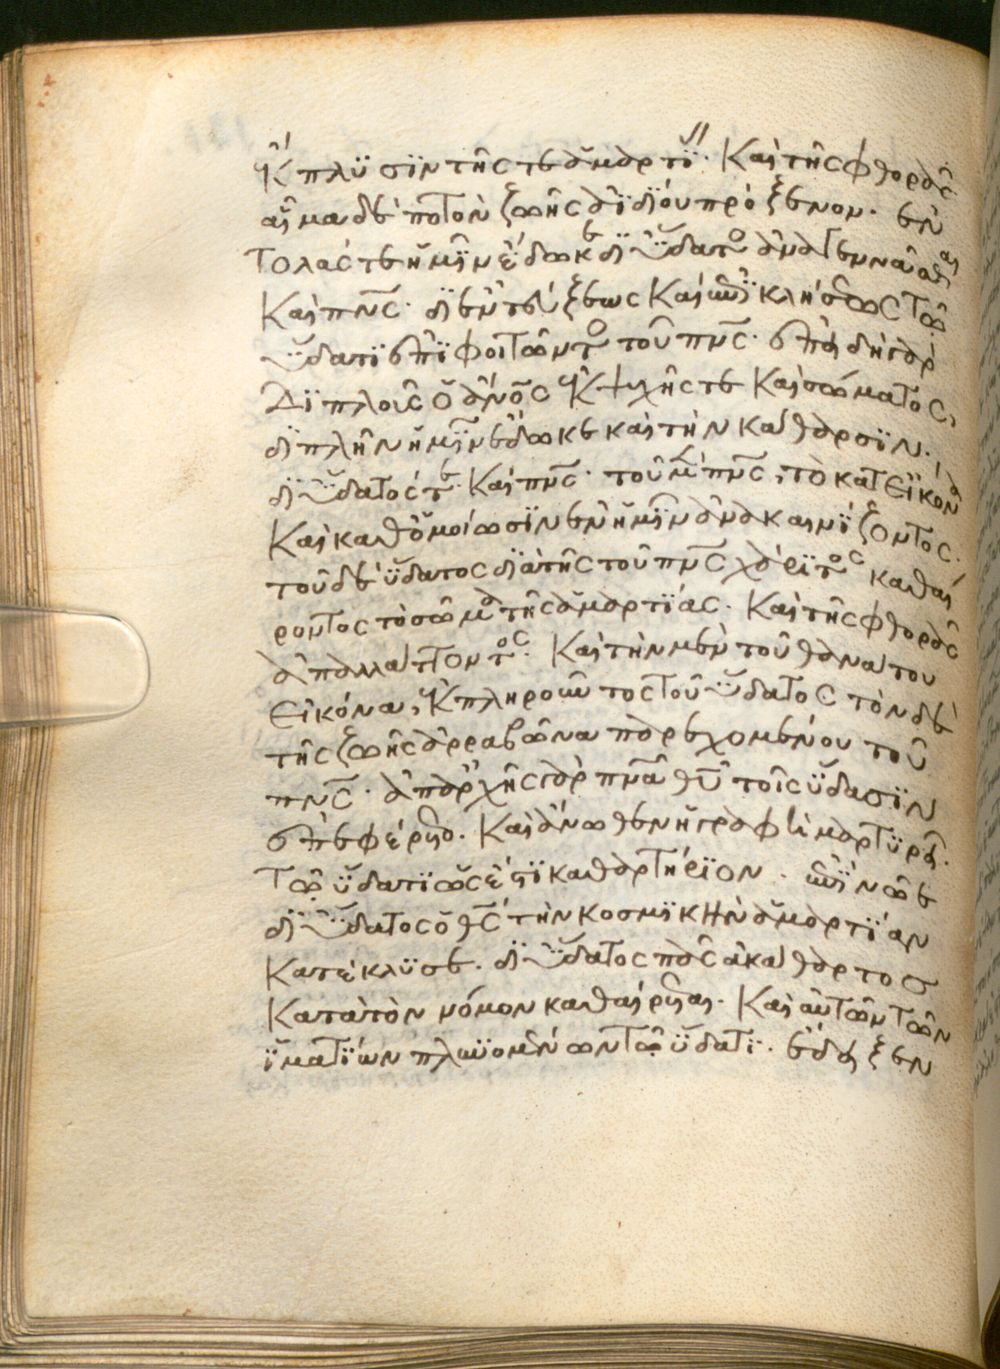 ἔκπλυσϊν τῆς τε ἁμαρτΐ". Καὶ τῆς φθορᾶς·
αἷμα δὲ ποτὸν ζωῆς ἀϊδίου πρόξενον. ἐν
τολάς τε ἡμῖν ἔδωκε δϊ ὕδατος ἀναγεννᾶσθαι
Καὶ πνς. δϊ ἐντεύξεως Καὶ ἐπϊκλήσεως τῷ
ὕδατϊ ἐπϊφοιτῶντος τοῦ πνς. ἐπεὶ δὴ γὰρ
Διπλοῦς ὁ ἄνος ἐκ ψυχῆς τε Καὶ σώματος,
διπλῆν ἡμῖν ἔδωκε καὶ τὴν κάθαρσϊν.
δϊ ὕδατός τε Καὶ πνς. τοῦ μὲν πνς, τὸ κατ εἰκόνα
Καὶ καθ ὁμοίωσϊν ἐν ἡμῖν ἀνακαινΐζοντος.
τοῦ δὲ ὕδατος διὰ τῆς τοῦ πνς χάριτος καθαί
ροντος τὸ σῶμα τῆς ἁμαρτΐας. Καὶ τῆς φθορᾶς
ἀπαλλάττοντος. Καὶ τὴν μὲν τοῦ θανάτου
Εἰκόνα, ἐκπληροῦντος τοῦ ὕδατος τὸν δὲ
τῆς ζωῆς ἀρραβῶνα παρεχομένου τοῦ
πνς. ἀπαρχῆς γὰρ πνα θυ τοῖς ὕδασϊν
ἐπεφέρετο. Καὶ ἄνωθεν ἡ γραφὴ μαρτυρεῖ.
Τῷ ὕδατϊ ὡς ἔστϊ καθαρτήριον. ἐπϊ νῶε
δϊ ὕδατος ὁ θς τὴν κοσμϊκὴν ἁμαρτΐαν
Κατέκλϋσε. δϊ ὕδατος πᾶς ἀκάθαρτος
Κατὰ τὸν νόμον καθαίρεται. Καὶ αὐτῶν τῶν
ἱματΐων πλυνομένων τῷ ὕδατι. ἔδειξεν